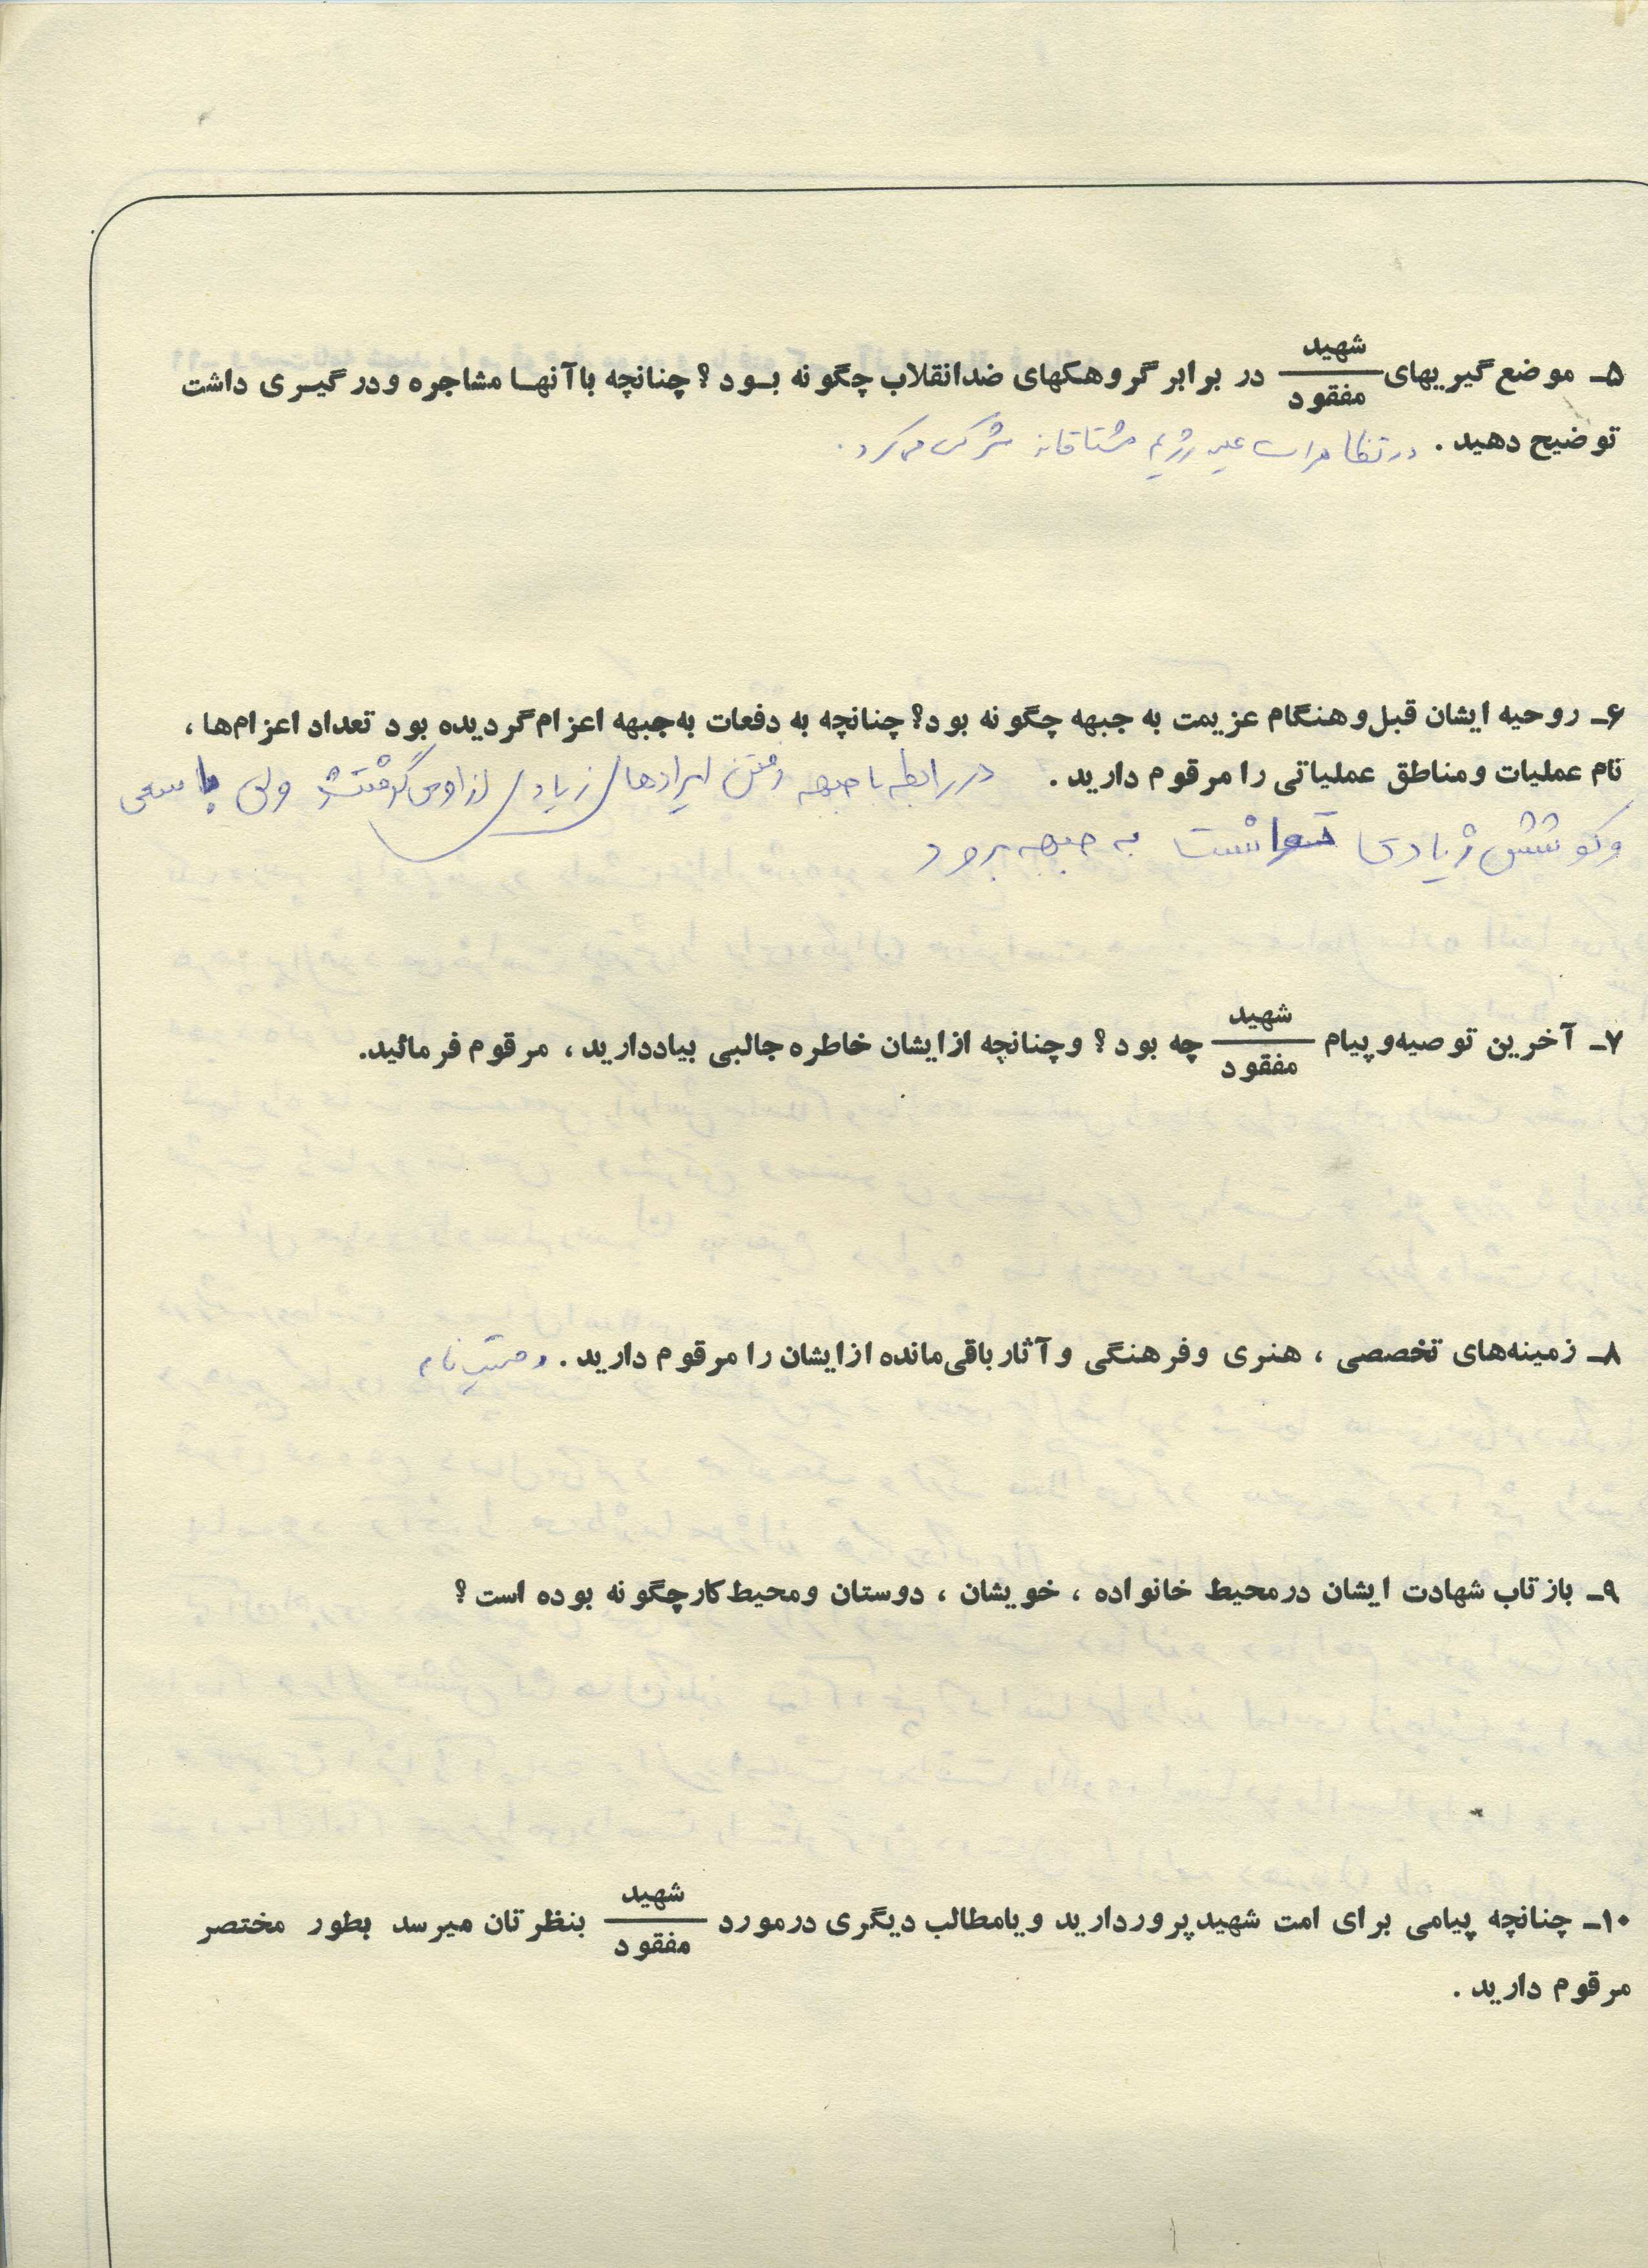 ۵ـ موضع‌گیریهای شهید/مفقود در برابر گروهکهای ضدانقلاب چگونه بود؟ چنانچه باآنها مشاجره ودرگیری داشت
توضیح دهید. در تظاهرات علیه رژیم مشتاقانه شرکت می‌کرد.
۶ـ روحیه ایشان قبل وهنگام عزیمت به جبهه چگونه بود؟ چنانچه به دفعات به‌جبهه اعزام‌گردیده بود تعداد اعزام‌ها،
نام عملیات ومناطق عملیاتی را مرقوم دارید. در رابطه با جبهه رفتن ایرادهای زیادی از او می‌گرفتند ولی با سعی
وکوشش زیادی توانست به جبهه برود
۷ـ آخرین توصیه‌وپیام شهید/مفقود چه بود؟ وچنانچه ازایشان خاطره جالبی بیاددارید، مرقوم فرمائید.
۸ـ زمینه‌های تخصصی، هنری وفرهنگی وآثارباقی‌مانده ازایشان را مرقوم دارید. وصیتنامه
۹ـ بازتاب شهادت ایشان درمحیط خانواده، خویشان، دوستان ومحیط‌کارچگونه بوده است؟
۱۰ـ چنانچه پیامی برای امت شهیدپروردارید ویامطالب دیگری درمورد شهید/مفقود بنظرتان میرسد بطور مختصر
مرقوم دارید.